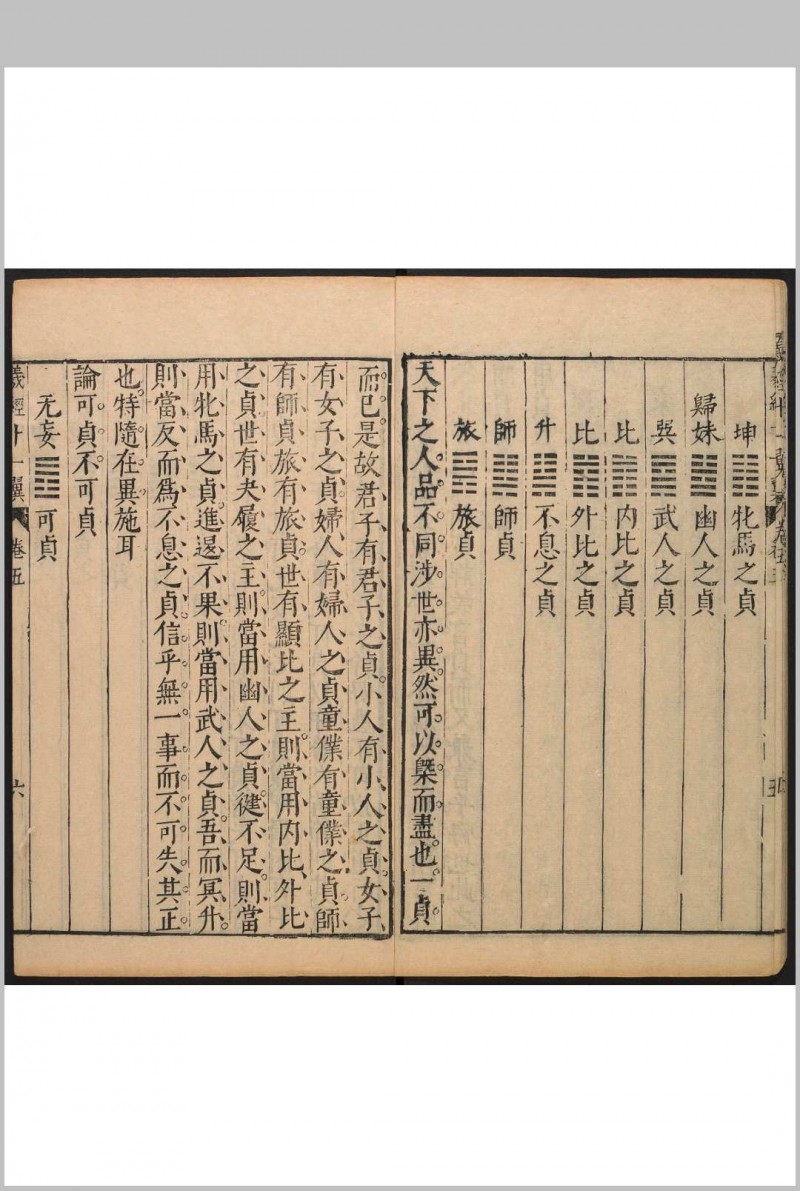 坤䷁牝馬之貞
歸妹䷵幽人之貞
巽䷸武人之貞
比䷇内比之貞
比䷇外比之貞
升䷭不息之貞
師䷆師貞
旅䷷旅貞
天下之人品不同涉世亦異然可以槩而盡也一貞
而已是故君子有君子之貞小人有小人之貞女子
有女子之貞婦人有婦人之貞童僕有童僕之貞師
有師貞旅有旅貞世有顯比之主則當用内比外比
之貞世有夬履之主則當用幽人之貞健不足則當
用牝馬之貞進退不果則當用武人之貞吾而冥升
則當反而爲不息之貞信乎無一事而不可失其正
也特隨在異施耳
論可貞不可貞
无妄䷘可貞
羲經十一翼 卷五 六